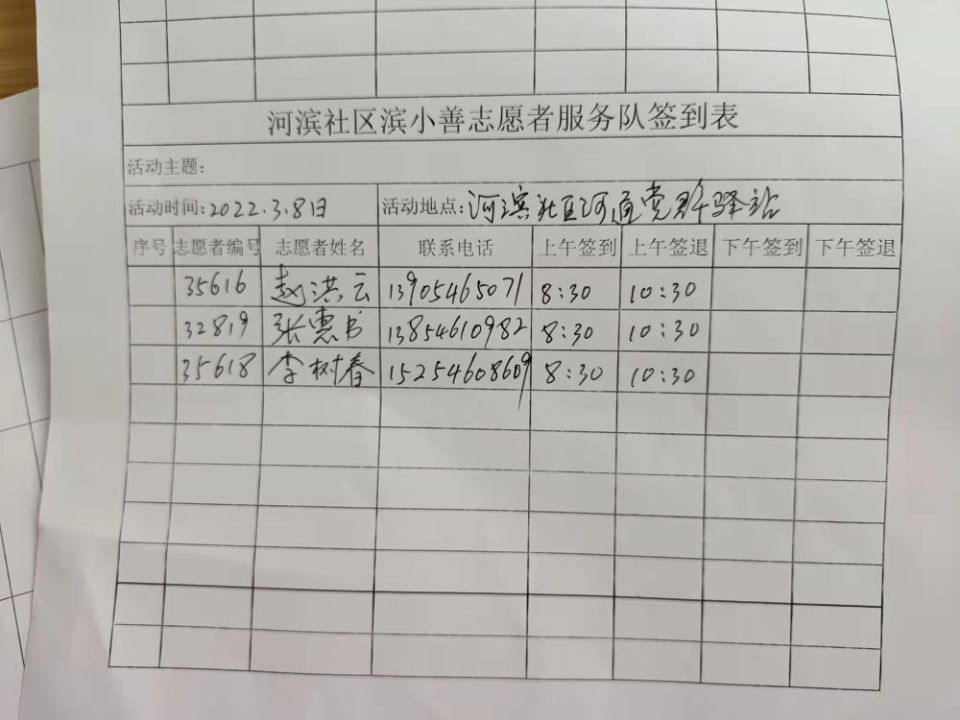 河滨社区滨小善志愿者服务队签到表
活动主题:
活动时间:2022.3.8日 活动地点:河滨社区河通党群驿站
序号 志愿者编号 志愿者姓名 联系电话 上午签到 上午签退 下午签到 下午签退
35616 赵洪云 13905465071 8:30 10:30
32819 张惠 13854610982 8:30 10:30
35618 李树春 15254608609 8:30 10:30